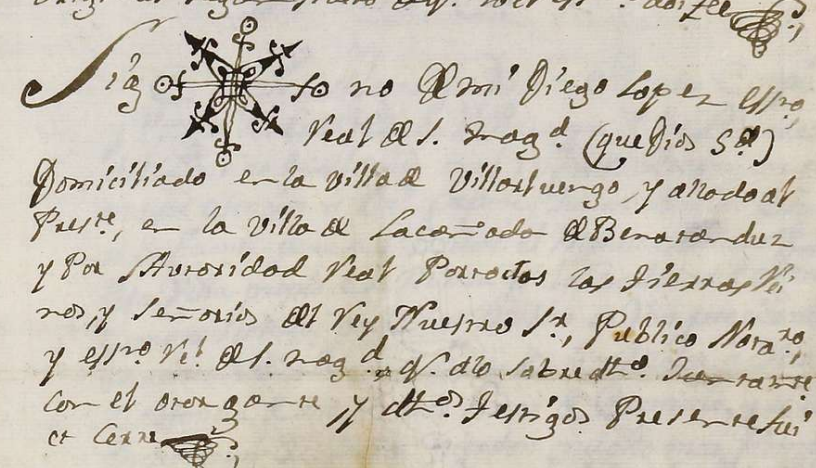 Sig no de mi Diego Lopez essno,
Real de S. Magd. (que Dios Gde)
Domiciliado en la villa de Villarluengo, y allado al
Preste, en la Villa de La cañada de Benatanduz
y Por Autoridad Real Por todas las tierras Rei
nos, y Señorios del Rey Nuestro Sr, Publico Notaro,
y essno Rl. de S. Magd. q. a lo sobredtho. Juntamte
con el otorgante, y dthos. Testigos Presente fui
et Cerre